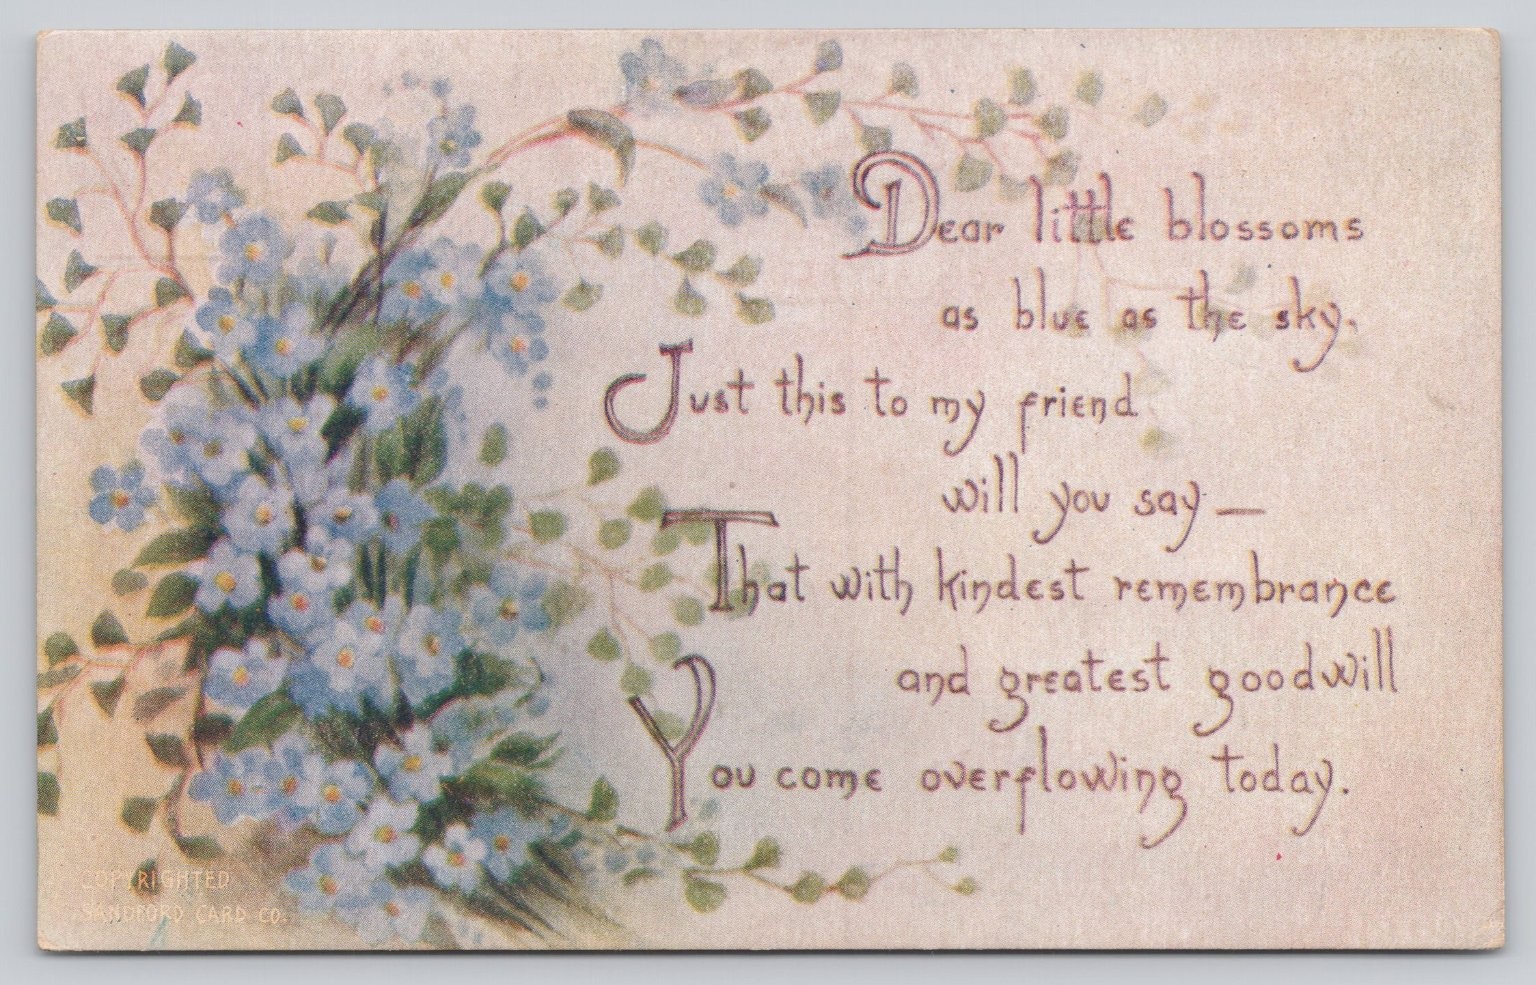 Dear little blossoms
as blue as the sky,
Just this to my friend
will you say —
That with kindest remembrance
and greatest goodwill
You come overflowing today.
COPYRIGHTED
SANDFORD CARD CO.